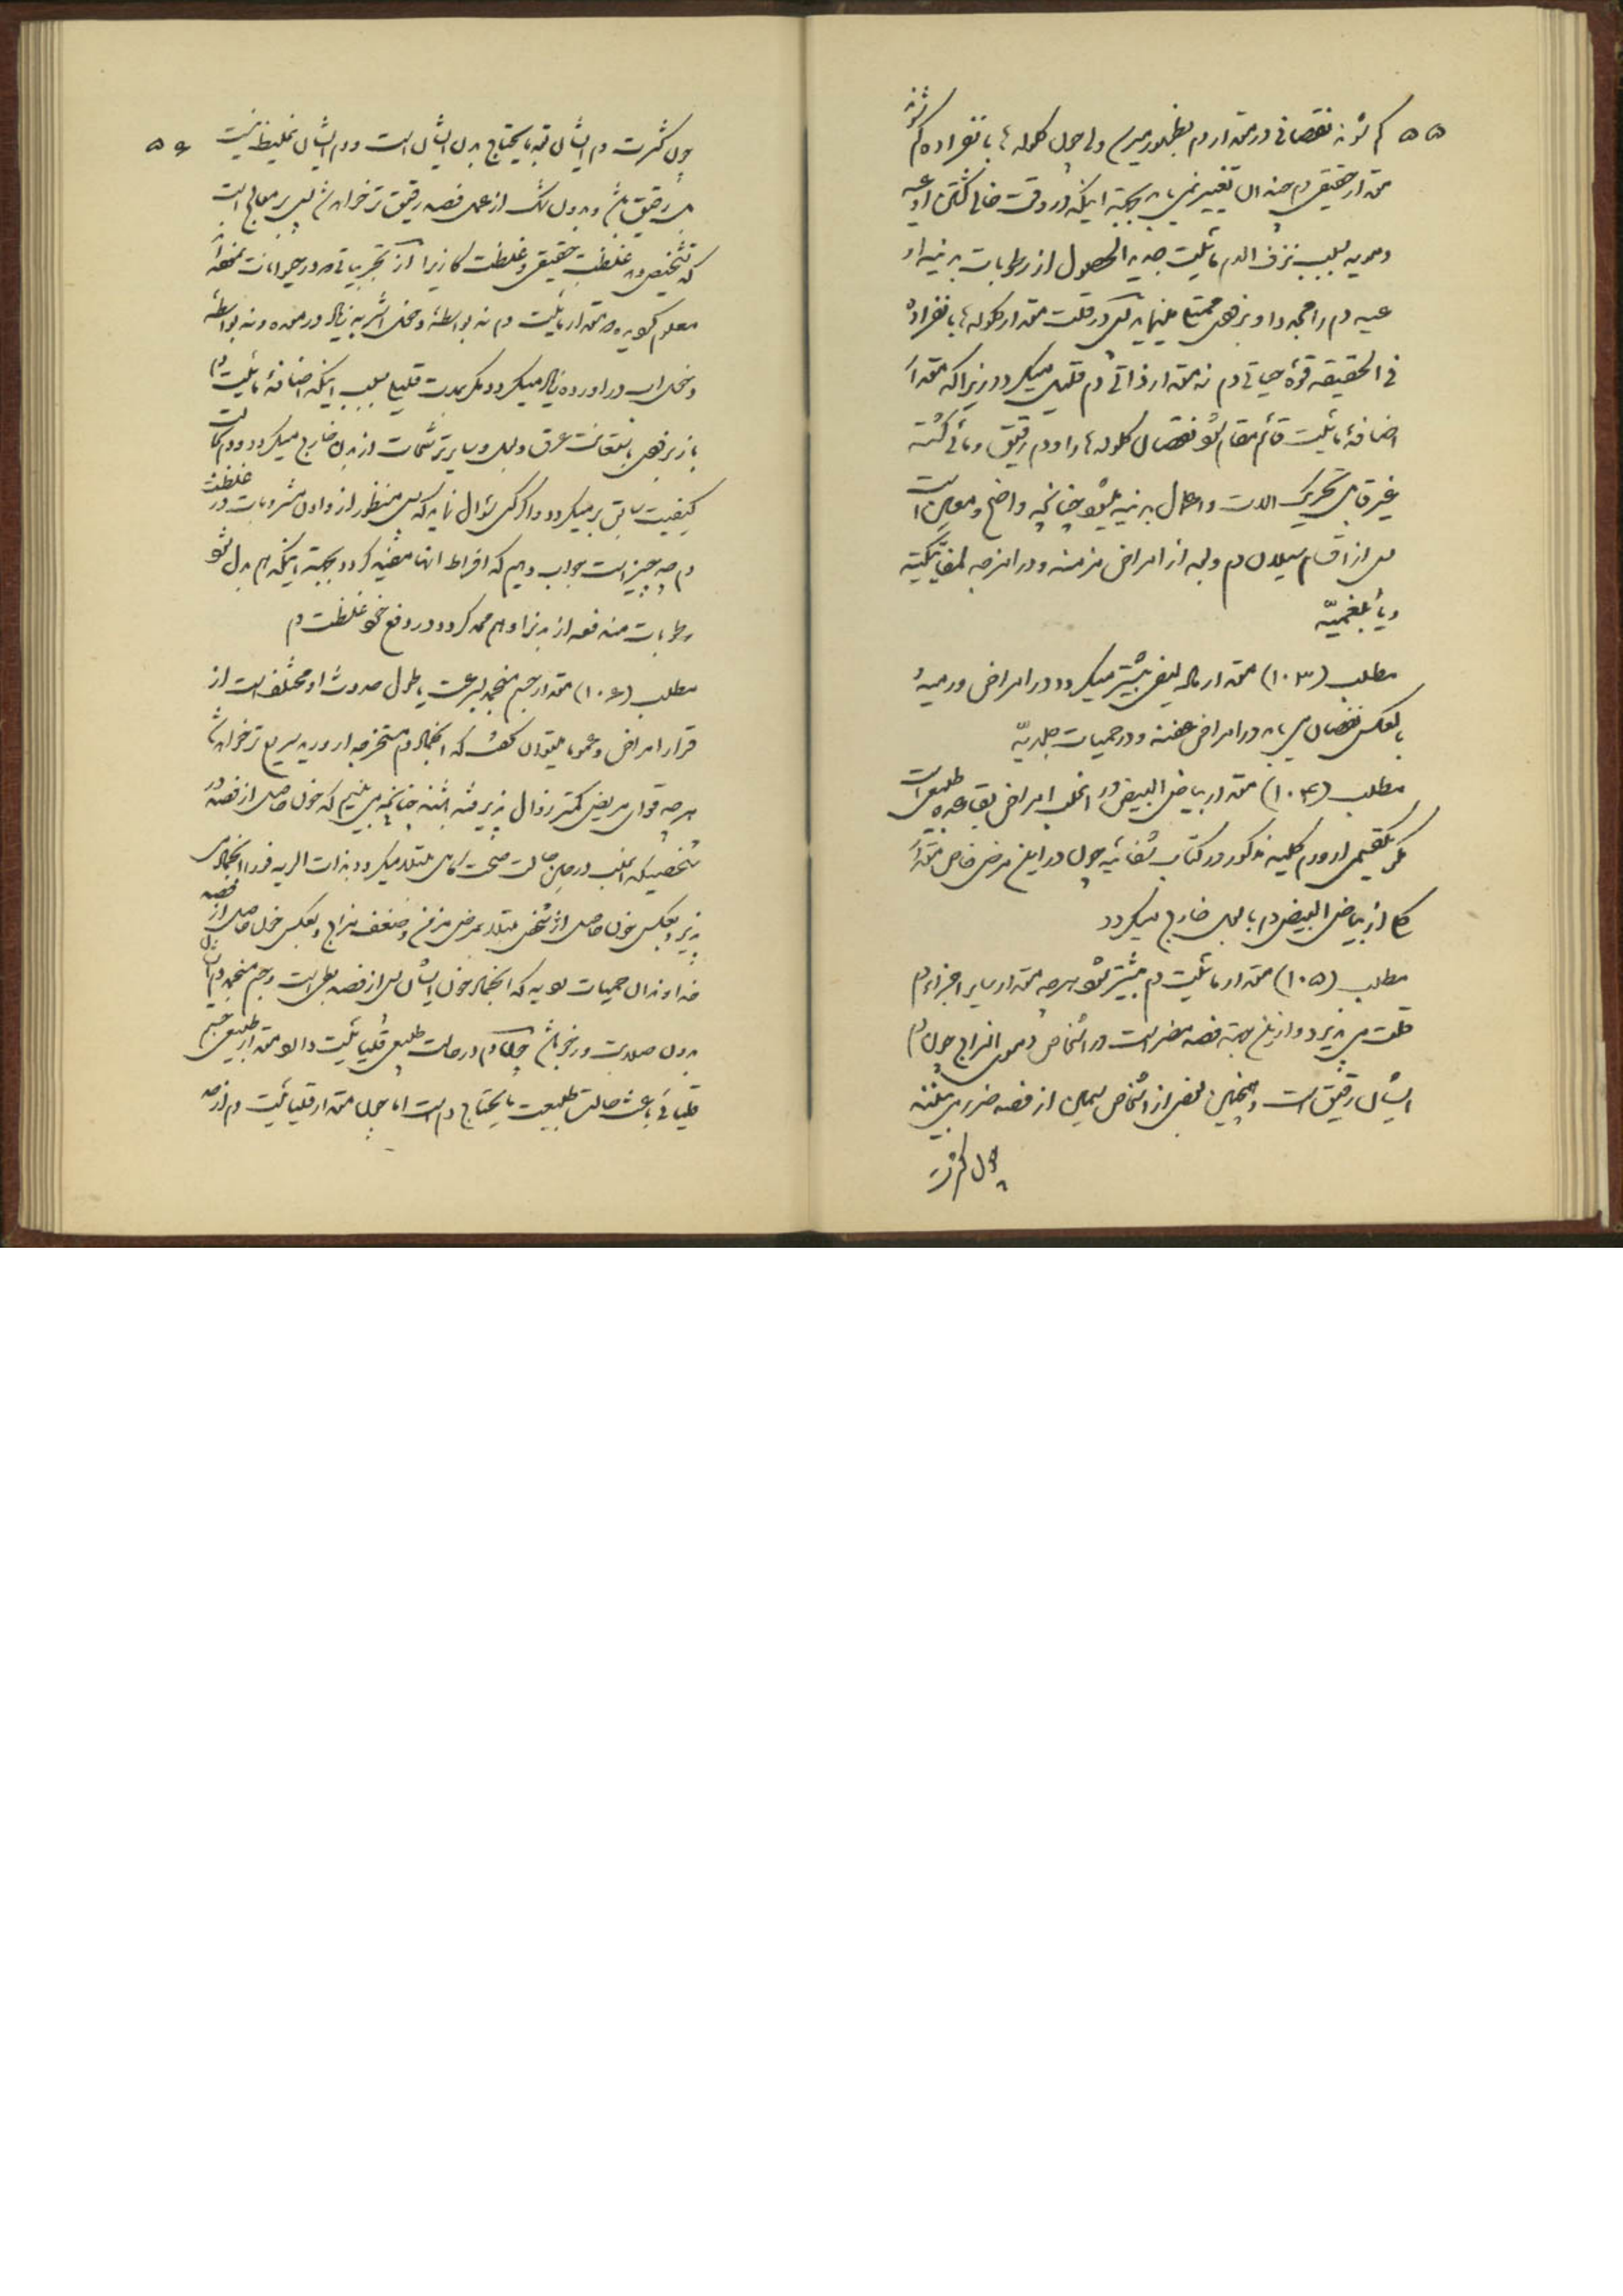 ۵۵ کم شوند نقصانی در مقدار دم بظهور میرسد ولی چون کلوله‌ها بانفراده کم شوند
مقدار حقیقی دم چندان تغییر نمی‌یابد بجهة اینکه در وقت خالی گشتن اوعیه
دمویه بسبب نزف الدم مائیت جدید الحصول از رطوبات بدنیه او
عیه دم را مجددا و بزودی ممتلی مینماید لیکن در قلت مقدار کلوله‌ها بانفراده
فی الحقیقه قوهٔ حیاتی دم نه مقدار ذاتی دم قلیل میکردد زیرا که مقدار
اضافهٔ مائیت قائم مقام شود نقصان کلوله‌ها را و دم رقیق و مائی کشته
غیر قابل تحریک الات و اعمال بدنیه میشود چنانچه واضح و معین است
بعد از اقسام سیلان دم و بعد از امراض مزمنه و در امزجه لمفاتیکیه
و یا بلغمیه
مطلب (۱۰۳) مقدار ماده لیفی بیشتر میکردد در امراض ورمیهٔ
بالعکس نقصان می‌یابد در امراض عفنه و در حمیات جلدیه
مطلب (۱۰۴) مقدار بیاض البیض در اغلب امراض بقاعده طبیعی است
مکر یکقسمی از ورم کلیه مذکور در کتاب شفائیه چون در این مرض خاص مقدار
کلی از بیاض البیض دم با بول خارج میکردد
مطلب (۱۰۵) مقدار مائیت دم بیشتر شود هرچه مقدار سایر اجزاء دم
قلت می‌پذیرد و از این جهة فصد مضر است در اشخاص دموی المزاج چون دم
ایشان رقیق است و همچنین بعضی از اشخاص سمین از فصد ضرر می‌بینند
چون کثرت
۵۶ چون کثرت دم ایشان بقدر مایحتاج بدن ایشان است و دم ایشان غلیظ نیست
بل رقیق باشد و بدون شک از عمل فصد رقیق‌تر خواهد شد پس بر معالج است
که تشخیص دهد غلظت حقیقی و غلظت کاذب را از تجربیاتی در حیوانات متعدده
معلوم کردیده مقدار مائیت دم نه بواسطهٔ دخول اشربه زیاد در معده و نه بواسطهٔ
دخول اب در اورده زیاد میکردد مکر بمدت قلیلی بسبب اینکه اضافهٔ مائیت دم
باز بزودی بتعاونت عرق و بول و سایر ترشحات از بدن خارج میکردد و دم بحالت
کیفیت سابق برمیکردد و اکر کسی سؤال نماید که پس منظور از دادن مشروبات در غلظت
دم چه چیز است جواب دهیم که افراط انها مفید کردد بجهة اینکه هم بدل شود
رطوبات مندفعه از بدن را و هم ممد کردد در دفع نحو غلظت دم
مطلب (۱۰۶) مقدار جسم منجمد بسرعت یا طول حدوث او مختلف است از
قرار امراض و عموما میتوان کفت که انجماد دم مستخرجه از ورید سریع‌تر خواهد شد
هرچه قوای مریض کمتر زوال پذیرفته باشد چنانچه می‌بینیم که خون حاصل از فصد در
شخصیکه اغلب در عین حالت صحت کامل مبتلا میکردد بذات الریه فورا انجماد
پذیرد بعکس خون حاصل از شخص مبتلا بمرض مزمن و ضعف مزاج و بعکس خون حاصل از فصد
خداوندان حمیات لوبیه که انجماد خون ایشان پس از فصد بطی است و جسم منجمد دم ایشان
بدون صلابت و رخو باشد چونکه دم در حالت طبیعی قلیائیت دارد و مقدار طبیعی جسم
قلیائی باعث حالت طبیعت مایحتاج دم است اما چون مقدار قلیائیت دم از حد